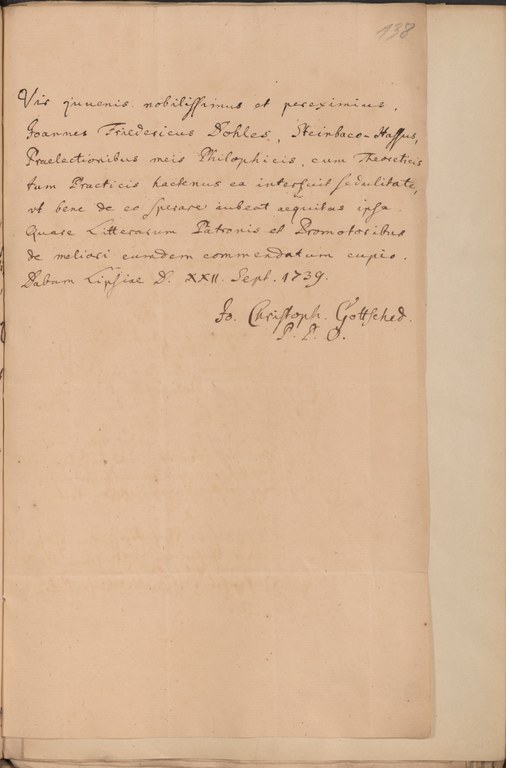 138
Vir juvenis nobilissimus et pereximius,
Joannes Fridericus Dohles, Steinbaco-Hassus,
Praelectionibus meis Philophicis, cum Theoreticis
tum Practicis hactenus ea interfuit sedulitate,
ut bene de eo sperare jubeat aequitas ipsa.
Quare Litterarum Patronis et Promotoribus
de meliori eumdem commendatum cupio.
Dabam Lipsiae D. XXII. Sept. 1739.
Jo. Christoph. Gottsched.
P. P. O.